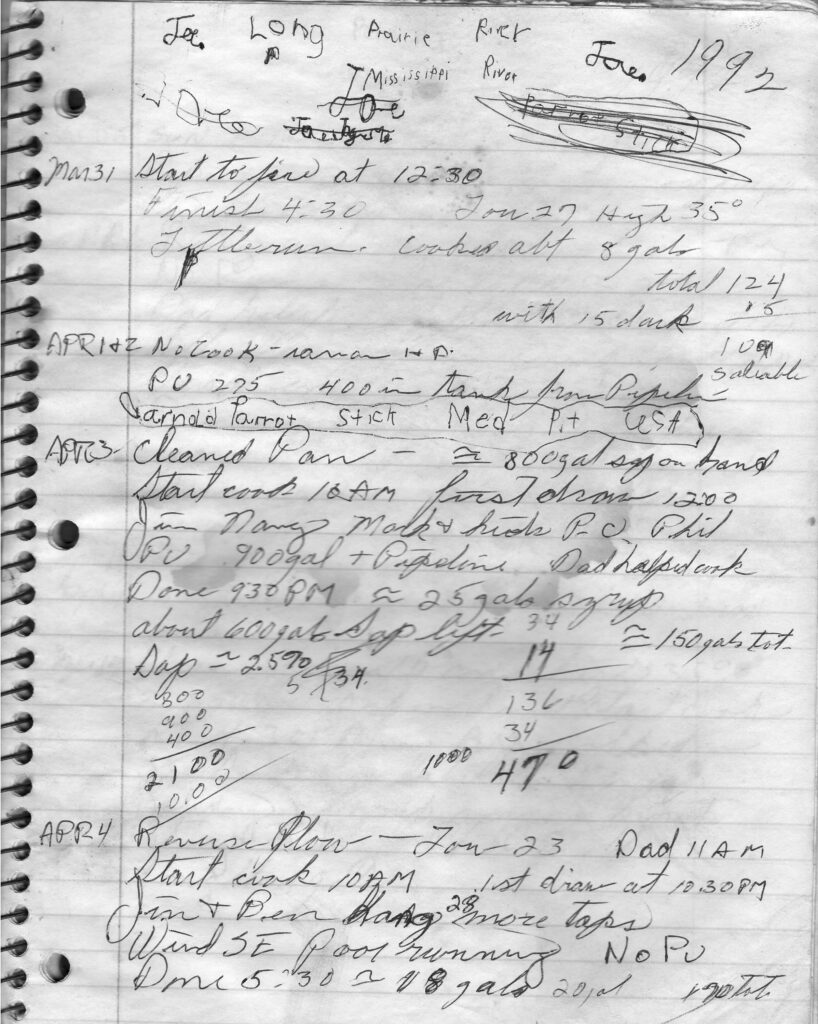 Joe. Long Prairie River Joe. 1992
Mississippi River
Joe
Parrot Stick
Mar 31 Start to fire at 12:30
Finish 4:30 Low 27 High 35°
Little run. cooked abt 8 gals
total 124
with 15 dark 15
109
Saleable
APR 1+2 No Cook -
PU 275 400 in tank from Pipeline
arnold Parrot Stick Med Pit USA
APR 3- Cleaned Pan - ≅ 800 gal sap on hand
Start cook 10 AM first draw 12:00
Jim Nancy Mark + kids P-U Phil
PU 900 gal + Pipeline Dad helped cook
Done 930 PM ≅ 25 gals syrup
about 600 gals Sap left 34 ≅ 150 gals tot-
Sap ≅ 2.5% 14
5 34.
800 136
900 34
400 1000 470
2100
10.00
APR 4 Reverse Flow - Low 23 Dad 11 AM
Start cook 10 AM 1st draw at 10:30 PM
Jim + Ben Hang 28 more taps
Wind SE Poor running No PU
Done 5:30 ≅ 18 gals 20 gal tot.